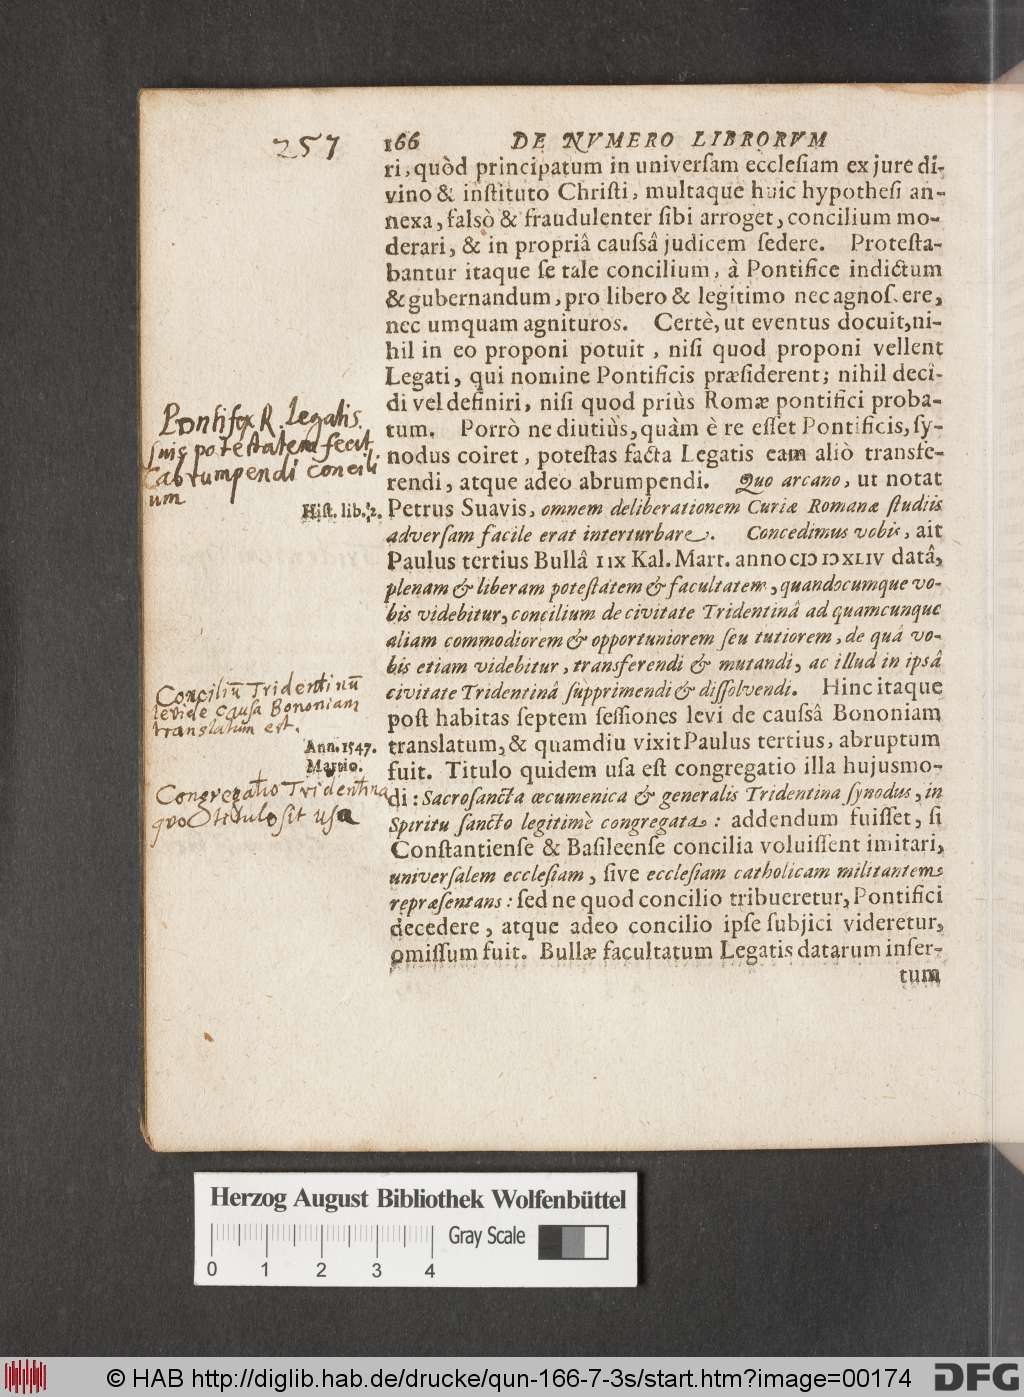 257
166 DE NVMERO LIBRORVM
ri, quòd principatum in universam ecclesiam ex jure di-
vino & instituto Christi, multaque huic hypothesi an-
nexa, falsò & fraudulenter sibi arroget, concilium mo-
derari, & in propriâ caussâ judicem sedere. Protesta-
bantur itaque se tale concilium, à Pontifice indictum
& gubernandum, pro libero & legitimo nec agnoscere,
nec umquam agnituros. Certè, ut eventus docuit, ni-
hil in eo proponi potuit, nisi quod proponi vellent
Legati, qui nomine Pontificis præsiderent; nihil deci-
di vel definiri, nisi quod priùs Romæ pontifici proba-
tum. Porrò ne diutiùs, quàm è re esset Pontificis, sy-
nodus coiret, potestas facta Legatis eam aliò transfe-
rendi, atque adeo abrumpendi. Quo arcano, ut notat
Petrus Suavis, omnem deliberationem Curiæ Romanæ studiis
adversam facile erat interturbare. Concedimus vobis, ait
Paulus tertius Bullâ IIX Kal. Mart. anno CIƆ IƆXLIV datâ,
plenam & liberam potestatem & facultatem, quandocumque vo-
bis videbitur, concilium de civitate Tridentinâ ad quamcunque
aliam commodiorem & opportuniorem seu tutiorem, de quâ vo-
bis etiam videbitur, transferendi & mutandi, ac illud in ipsâ
civitate Tridentinâ supprimendi & dissolvendi. Hinc itaque
post habitas septem sessiones levi de caussâ Bononiam
translatum, & quamdiu vixit Paulus tertius, abruptum
fuit. Titulo quidem usa est congregatio illa hujusmo-
di: Sacrosancta œcumenica & generalis Tridentina synodus, in
Spiritu sancto legitimè congregata: addendum fuisset, si
Constantiense & Basileense concilia voluissent imitari,
universalem ecclesiam, sive ecclesiam catholicam militantem
repræsentans: sed ne quod concilio tribueretur, Pontifici
decedere, atque adeo concilio ipse subjici videretur,
omissum fuit. Bullæ facultatum Legatis datarum inser-
tum
Pontifex R. legatis
suis potestatem fecit
abrumpendi concili
um
Hist. lib. 2.
Conciliū Tridentinū
levi de causa Bononiam
translatum est.
Ann. 1547.
Martio.
Congregatio Tridentina
quo titulo sit usa
Herzog August Bibliothek Wolfenbüttel
Gray Scale
0 1 2 3 4
© HAB http://diglib.hab.de/drucke/qun-166-7-3s/start.htm?image=00174
DFG